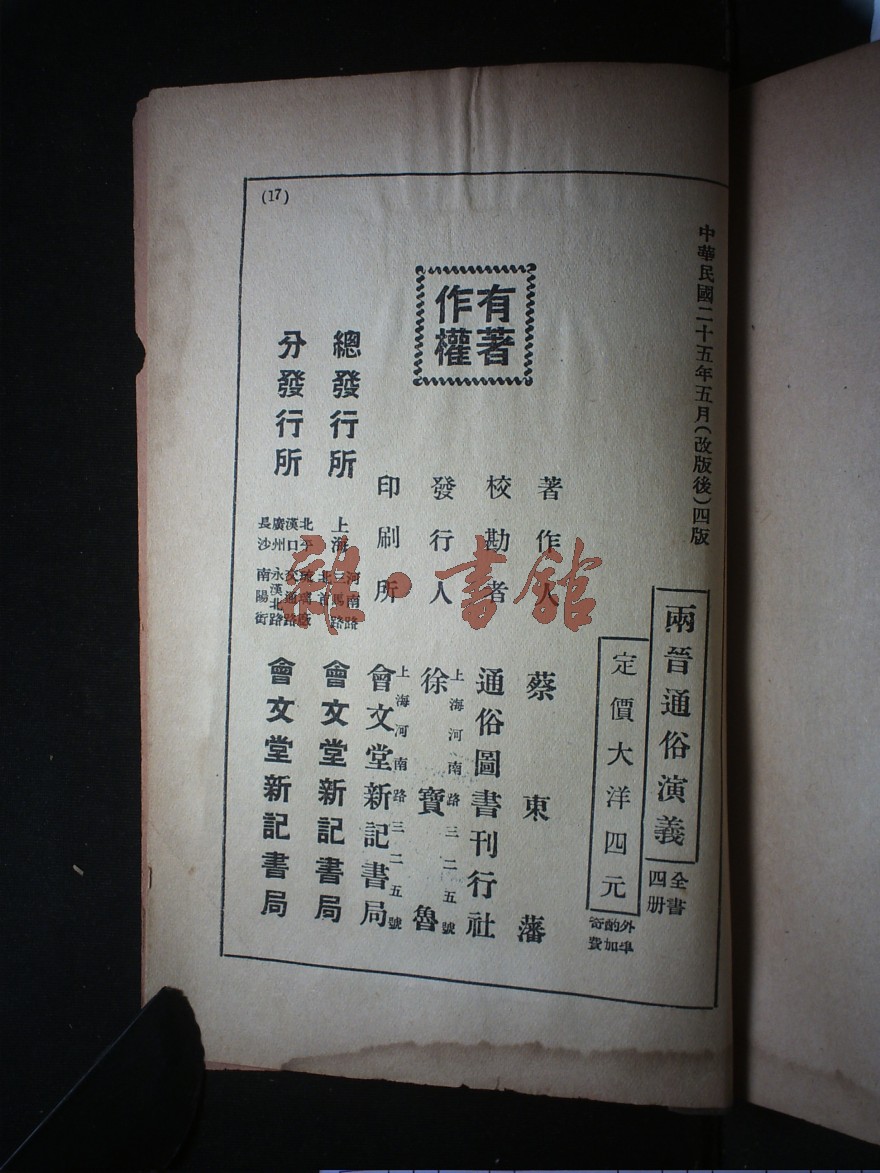 中華民國二十五年五月(改版後)四版
兩晉通俗演義
全書
四册
定價大洋四元
外埠
酌加
寄費
有著
作權
著作人 蔡東藩
校勘者 通俗圖書刊行社
發行人 徐寶魯
上海河南路三二五號
印刷所 會文堂新記書局
上海河南路三二五號
總發行所 上海 河南路
三馬路
北首
會文堂新記書局
分發行所
北平 琉璃廠
漢口 交通路
廣州 永漢北路
長沙 南陽街
會文堂新記書局
(17)
雜·書館